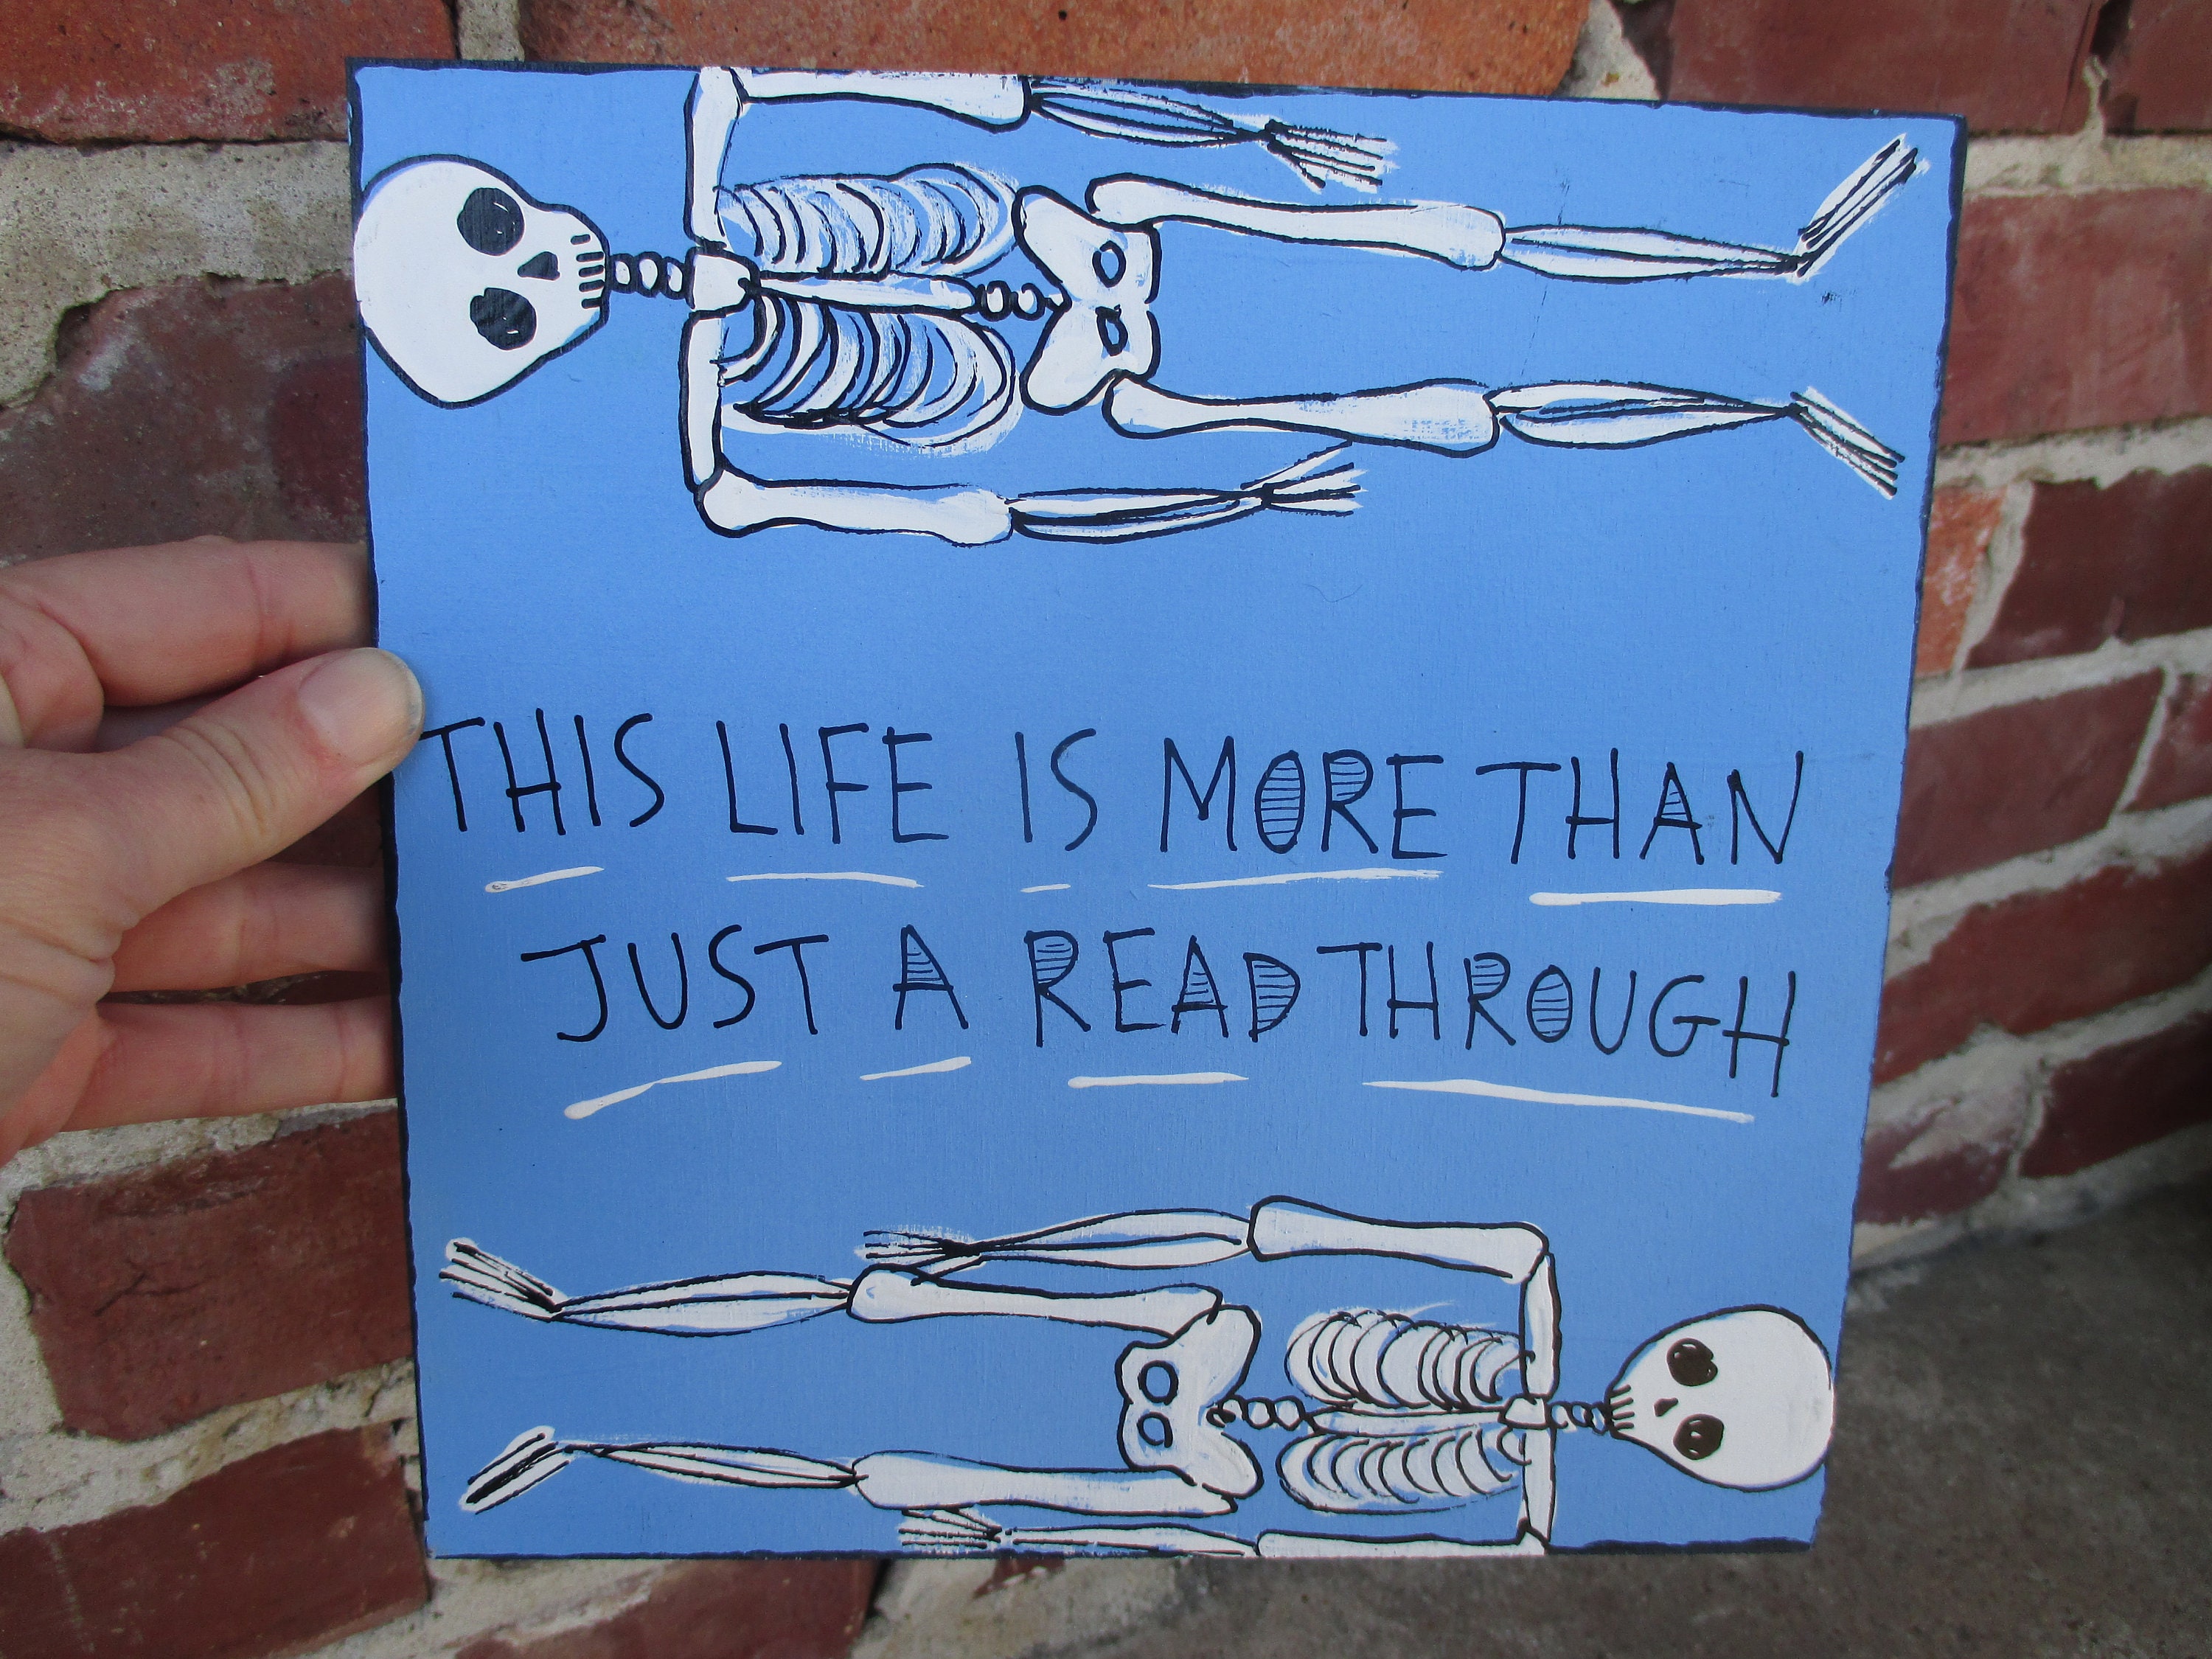 THIS LIFE IS MORE THAN
JUST A READ THROUGH